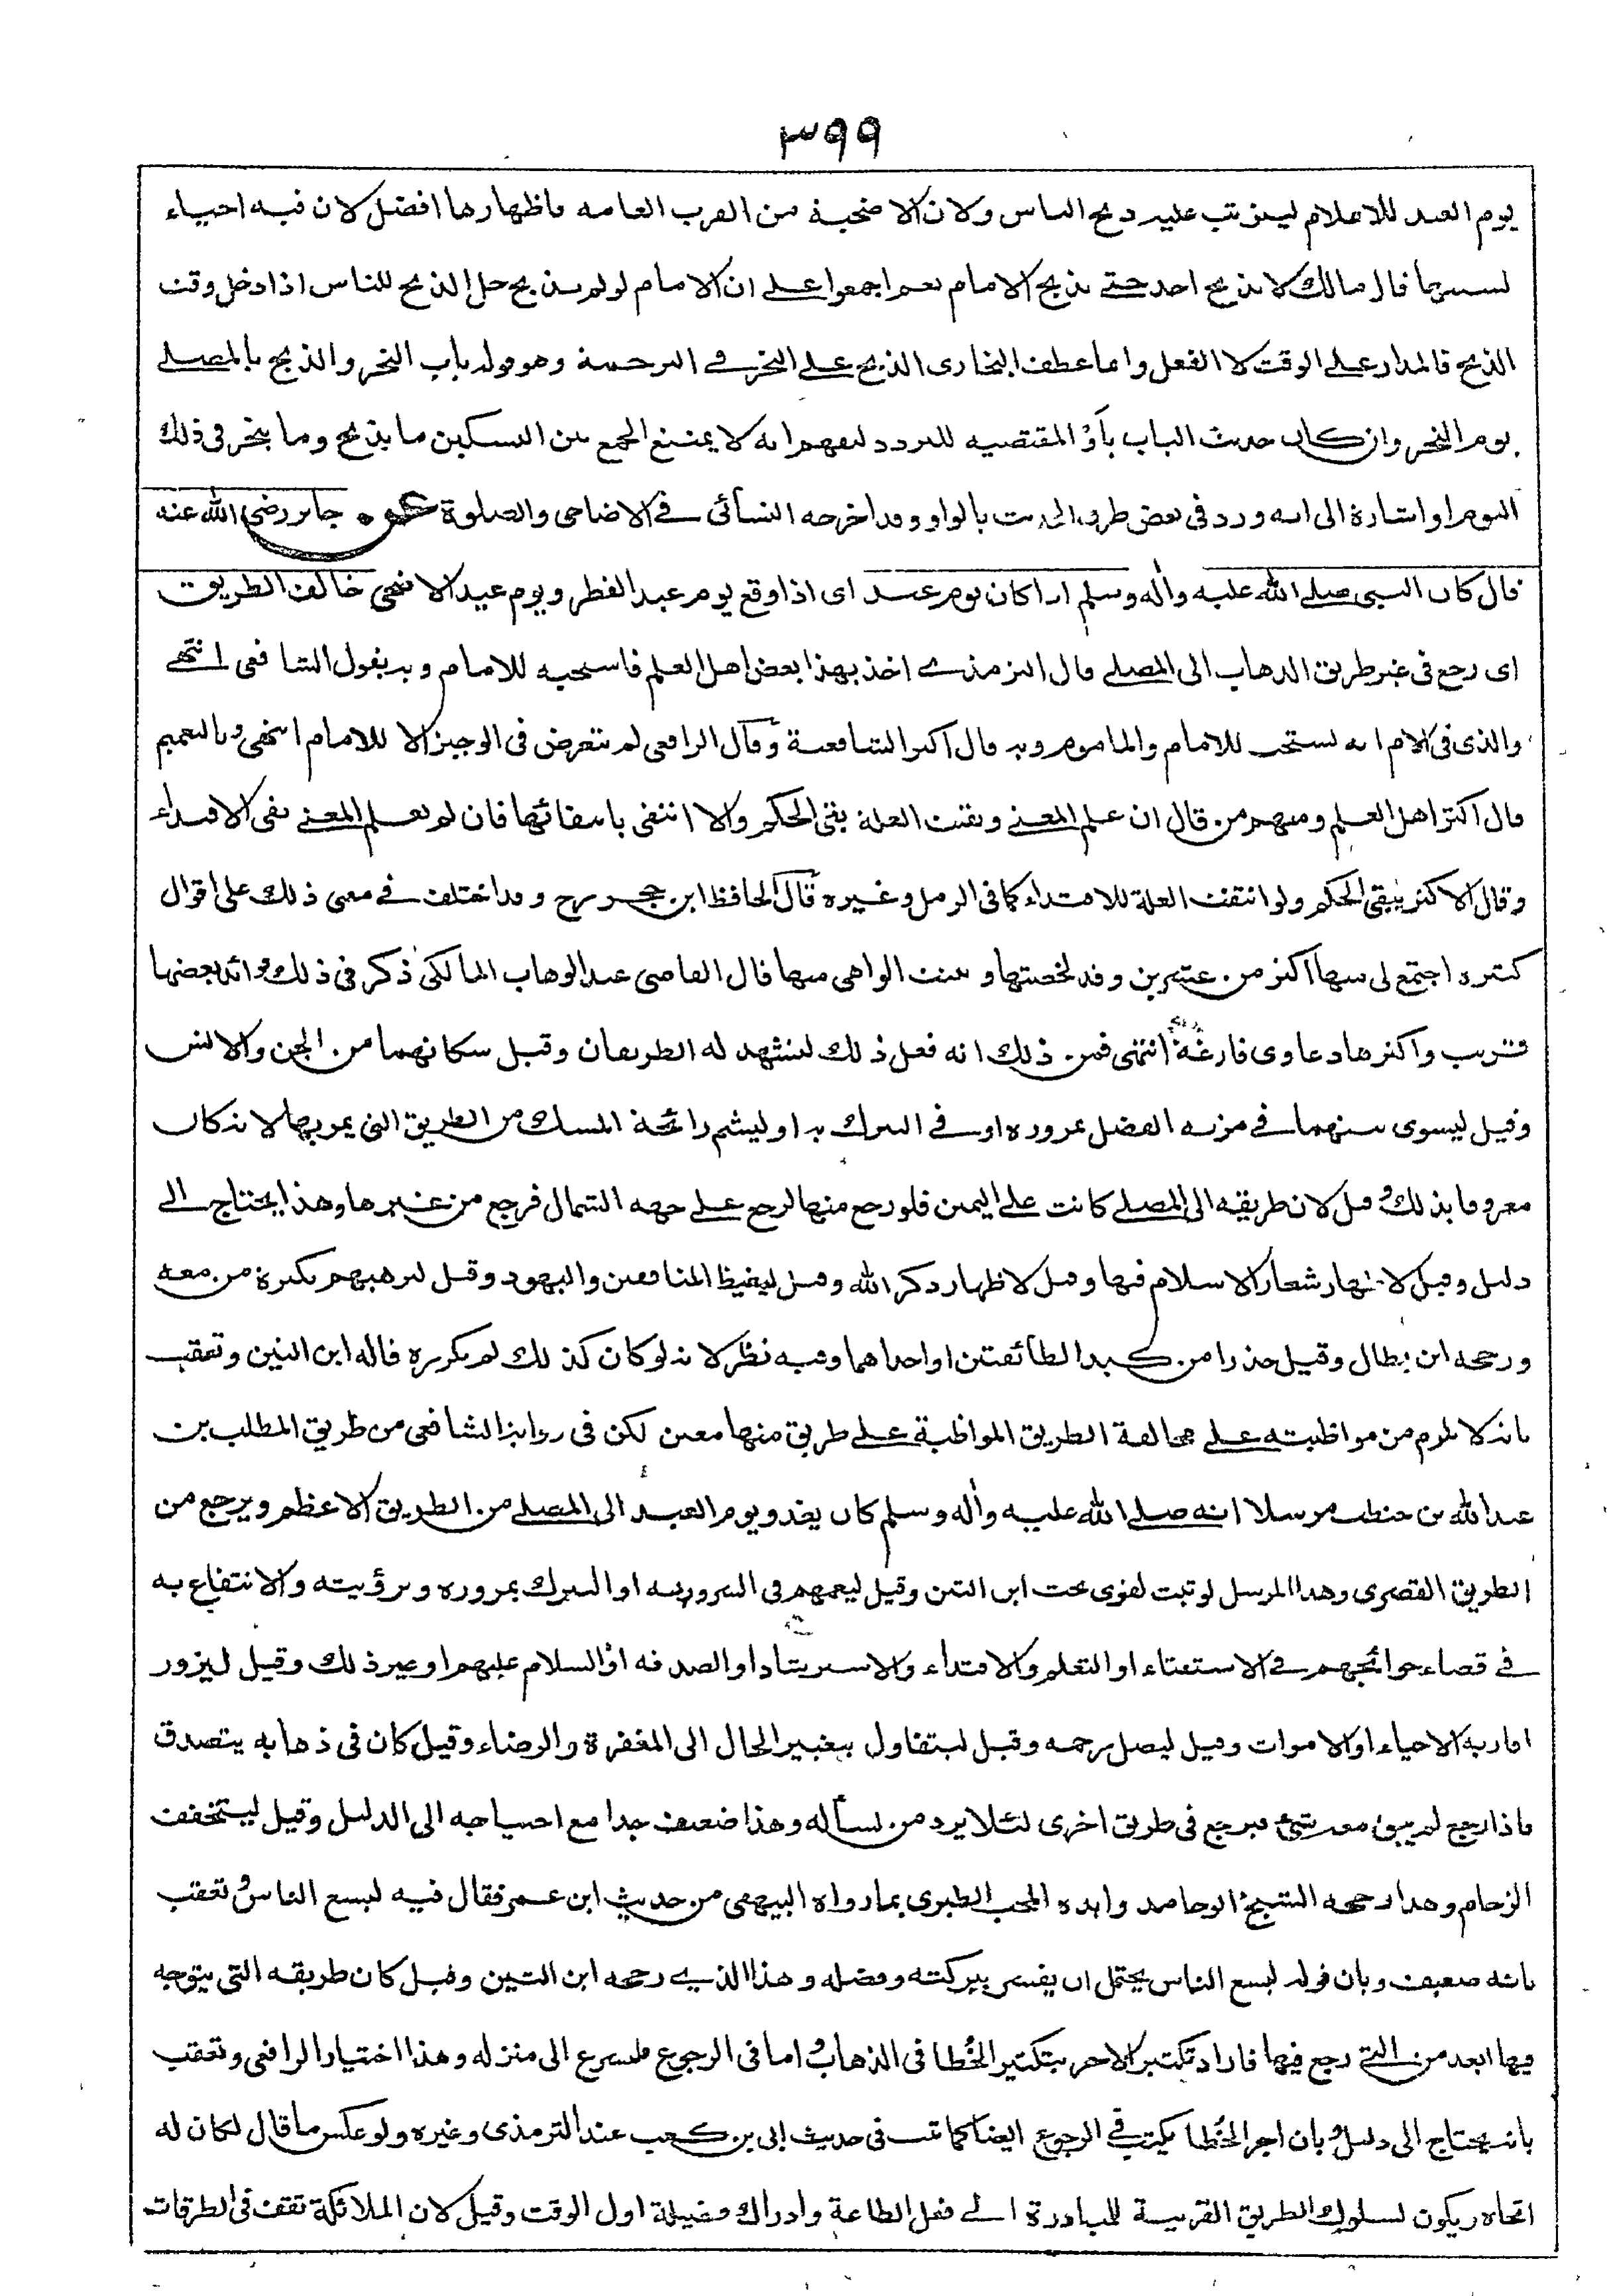 ٣٩٩
يوم العيد للاعلام ليترتب عليه ذبح الناس ولان الاضحية من القرب العامه فاظهارها افضل لان فيه احياء
لسنتها قال مالك لا يذبح احد حتى يذبح الامام نعم اجمعوا على ان الامام لو لم يذبح حل الذبح للناس اذا دخل وقت
الذبح فالمدار على الوقت لا الفعل وانما عطف البخارى الذبح على النحر فى الترجمة وهو قوله باب النحر والذبح بالمصلى
يوم النحر وان كان حديث الباب بأو المقتضيه للتردد ليفهم انه لا يمتنع الجمع بين النسكين ما يذبح وما ينحر فى ذلك
اليوم او اشارة الى انه ورد فى بعض طرق الحديث بالواو وقد اخرجه النسائى فى الاضاحى والصلوة عن جابر رضى الله عنه
قال كان النبى صلى الله عليه وأله وسلم اذا كان يوم عيد اى اذا وقع يوم عيد الفطر ويوم عيد الاضحى خالف الطريق
اى رجع فى غير طريق الذهاب الى المصلى قال الترمذى اخذ بهذا بعض اهل العلم فاستحبه للامام وبه يقول الشافعى انتهى
والذى فى الام انه يستحب للامام والماموم وبه قال اكثر الشافعية وقال الرافعى لم يتعرض فى الوجيز الا للامام انتهى وبالتعميم
قال اكثر اهل العلم ومنهم من قال ان علم المعنى وبقيت العلة بقى الحكم والا انتفى بانتفائها فان لم يعلم المعنى بقى الاقتداء
وقال الاكثر يبقى الحكم ولو انتفت العلة للاقتداء كما فى الرمل وغيره قال الحافظ ابن حجر رح وقد اختلف فى معنى ذلك على اقوال
كثيرة اجتمع لى منها اكثر من عشرين وقد لخصتها وبينت الواهى منها قال القاضى عبد الوهاب المالكى ذكر فى ذلك فوائد بعضها
قريب واكثرها دعاوى فارغة انتهى فمن ذلك انه فعل ذلك ليشهد له الطريقان وقيل سكانهما من الجن والانس
وقيل ليسوى بينهما فى مزية الفضل بمروره او فى التبرك به او ليشم رائحة المسك من الطريق التى يمر بها لانه كان
معروفا بذلك وقيل لان طريقه الى المصلى كانت على اليمين فلو رجع منها لرجع على جهة الشمال فرجع من غيرها وهذا يحتاج الى
دليل وقيل لاظهار شعار الاسلام فيها وقيل لاظهار ذكر الله وقيل ليغيظ المنافقين واليهود وقيل ليرهبهم بكثرة من معه
ورجحه ابن بطال وقيل حذرا من كيد الطائفتين او احداهما وفيه نظر لانه لو كان كذلك لم يكرره قاله ابن التين وتعقب
بانه لا يلزم من مواظبته على مخالفة الطريق المواظبة على طريق منها معين لكن فى رواية الشافعى من طريق المطلب بن
عبد الله بن حنطب مرسلا انه صلى الله عليه وأله وسلم كان يغدو يوم العيد الى المصلى من الطريق الاعظم ويرجع من
الطريق القصرى وهذا المرسل لو ثبت لقوى بحث ابن التين وقيل ليعمهم فى السرور به او التبرك بمروره وبرؤيته والانتفاع به
فى قضاء حوائجهم فى الاستفتاء او التعلم والاقتداء والاسترشاد او الصدقة او السلام عليهم او غير ذلك وقيل ليزور
اقاربه الاحياء او الاموات وقيل ليصل رحمه وقيل ليتفاول بتغيير الحال الى المغفرة والرضاء وقيل كان فى ذهابه يتصدق
فاذا رجع لم يبق معه شئ فيرجع فى طريق اخرى لئلا يرد من يسأله وهذا ضعيف جدا مع احتياجه الى الدليل وقيل ليستخفف
الزحام وهذا رجحه الشيخ ابو حامد وايده المحب الطبرى بما رواه البيهقى من حديث ابن عمر فقال فيه ليسع الناس وتعقب
بانه ضعيف وبان قوله ليسع الناس يحتمل ان يفسر ببركته وفضله وهذا الذى رجحه ابن التين وقيل كان طريقه التى يتوجه
فيها ابعد من التى رجع فيها فاراد تكثير الاجر بتكثير الخُطا فى الذهاب واما فى الرجوع فليسرع الى منزله وهذا اختيار الرافعى وتعقب
بانه يحتاج الى دليل وبان اجر الخُطا يكتب فى الرجوع ايضا كما ثبت فى حديث ابى بن كعب عند الترمذى وغيره ولو عكس ما قال لكان له
اتجاه ويكون لسلوك الطريق القريبة للمبادرة الى فعل الطاعة وادراك فضيلة اول الوقت وقيل لان الملائكة تقف فى الطرقات